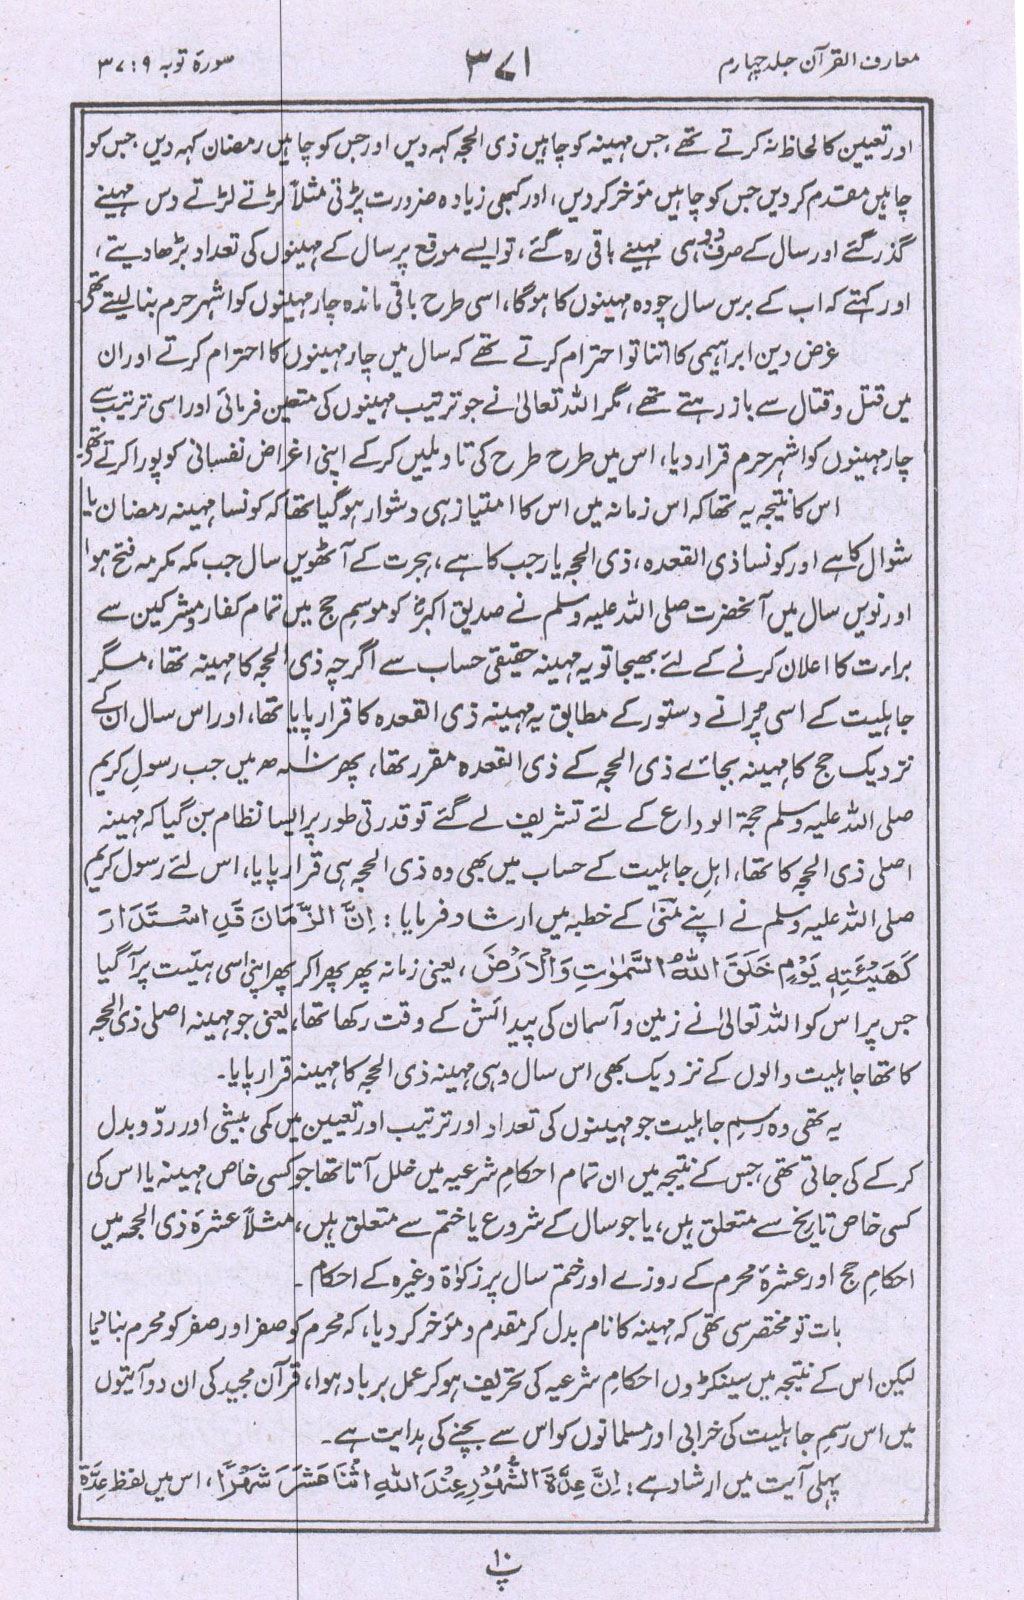 معارف القرآن جلد چہارم ۳۷۱ سورۃ توبہ ۹ : ۳۷
اور تعیین کا لحاظ نہ کرتے تھے، جس مہینہ کو چاہیں ذی الحجہ کہہ دیں اور جس کو چاہیں رمضان کہہ دیں، جس کو
چاہیں مقدم کردیں جس کو چاہیں مؤخر کردیں، اور کبھی زیادہ ضرورت پڑتی مثلاً لڑتے لڑتے دس مہینے
گذر گئے اور سال کے صرف دو ہی مہینے باقی رہ گئے، تو ایسے موقع پر سال کے مہینوں کی تعداد بڑھا دیتے،
اور کہتے کہ اب کے برس سال چودہ مہینوں کا ہوگا، اسی طرح باقی ماندہ چار مہینوں کو اشہر حرم بنا لیتے تھے،
غرض دین ابراہیمی کا اتنا تو احترام کرتے تھے کہ سال میں چار مہینوں کا احترام کرتے اور ان
میں قتل و قتال سے باز رہتے تھے، مگر اللہ تعالیٰ نے جو ترتیب مہینوں کی متعین فرمائی اور اسی ترتیب سے
چار مہینوں کو اشہر حرم قرار دیا، اس میں طرح طرح کی تاویلیں کرکے اپنی اغراض نفسانی کو پورا کرتے تھے۔
اس کا نتیجہ یہ تھا کہ اس زمانہ میں اس کا امتیاز ہی دشوار ہوگیا تھا کہ کونسا مہینہ رمضان یا
شوال کا ہے اور کونسا ذی القعدہ، ذی الحجہ یا رجب کا ہے، ہجرت کے آٹھویں سال جب مکہ مکرمہ فتح ہوا
اور نویں سال میں آنحضرت صلی اللہ علیہ وسلم نے صدیق اکبرؓ کو موسم حج میں تمام کفار و مشرکین سے
براءت کا اعلان کرنے کے لئے بھیجا تو یہ مہینہ حقیقی حساب سے اگرچہ ذی الحجہ کا مہینہ تھا، مگر
جاہلیت کے اسی پُرانے دستور کے مطابق یہ مہینہ ذی القعدہ کا قرار پایا تھا، اور اس سال ان کے
نزدیک حج کا مہینہ بجائے ذی الحجہ کے ذی القعدہ مقرر تھا، پھر ۱۰ ؁ھ میں جب رسولِ کریم
صلی اللہ علیہ وسلم حجۃ الوداع کے لئے تشریف لے گئے تو قدرتی طور پر ایسا نظام بن گیا کہ مہینہ
اصلی ذی الحجہ کا تھا، اہلِ جاہلیت کے حساب میں بھی وہ ذی الحجہ ہی قرار پایا، اس لئے رسول کریم
صلی اللہ علیہ وسلم نے اپنے منیٰ کے خطبہ میں ارشاد فرمایا : اِنَّ الزَّمَانَ قَدِ اسْتَدَارَ
كَهَيْئَتِهٖ يَوْمَ خَلَقَ اللّٰهُ السَّمٰوٰتِ وَالْاَرْضَ، یعنی زمانہ پھر پھرا کر پھر اپنی اسی ہیئت پر آگیا
جس پر اس کو اللہ تعالیٰ نے زمین و آسمان کی پیدائش کے وقت رکھا تھا، یعنی جو مہینہ اصلی ذی الحجہ
کا تھا جاہلیت والوں کے نزدیک بھی اس سال وہی مہینہ ذی الحجہ کا مہینہ قرار پایا۔
یہ تھی وہ رسمِ جاہلیت جو مہینوں کی تعداد اور ترتیب اور تعیین میں کمی بیشی اور ردّ و بدل
کرکے کی جاتی تھی، جس کے نتیجہ میں ان تمام احکامِ شرعیہ میں خلل آتا تھا جو کسی خاص مہینہ یا اس کی
کسی خاص تاریخ سے متعلق ہیں، یا جو سال کے شروع یا ختم سے متعلق ہیں، مثلاً عشرۂ ذی الحجہ میں
احکامِ حج اور عشرۂ محرم کے روزے اور ختم سال پر زکوٰۃ وغیرہ کے احکام۔
بات تو مختصر سی تھی کہ مہینہ کا نام بدل کر مقدم و مؤخر کردیا، کہ محرم کو صفر اور صفر کو محرم بنا لیا
لیکن اس کے نتیجہ میں سینکڑوں احکامِ شرعیہ کی تحریف ہو کر عمل برباد ہوا، قرآن مجید کی ان دو آیتوں
میں اس رسمِ جاہلیت کی خرابی اور مسلمانوں کو اس سے بچنے کی ہدایت ہے۔
پہلی آیت میں ارشاد ہے : اِنَّ عِدَّةَ الشُّهُوْرِ عِنْدَ اللّٰهِ اثْنَا عَشَرَ شَهْرًا، اس میں لفظ عِدَّۃ
پ۱۰